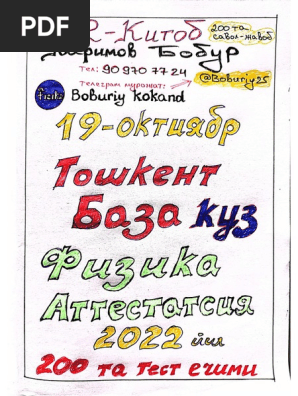 PDF
2-Китоб
200 та
савол-жавоб
Каримов Бобур
Тел: 90 970 77 24
Телеграм мурожат:
@Boburiy25
Fizika
Boburiy Kokand
19-октиабр
Тошкент
База куз
Физика
Аттестатсия
2022 йил
200 та тест ечими